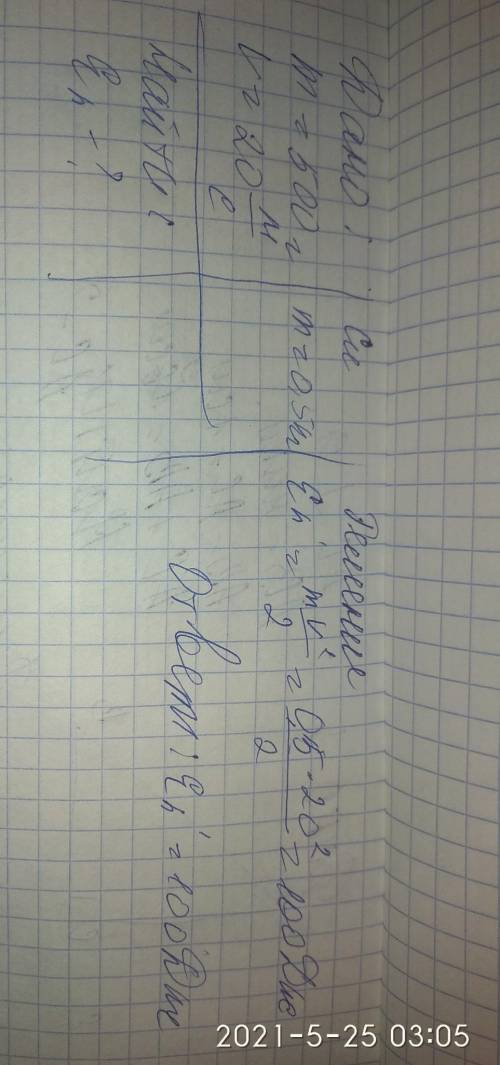 Дано:
m = 500 г
v = 20 м/с
Найти:
Eк - ?
Си
m = 0,5 кг
Решение
Eк = mv²/2 = 0,5·20²/2 = 100 Дж
Ответ: Eк = 100 Дж
2021-5-25 03:05